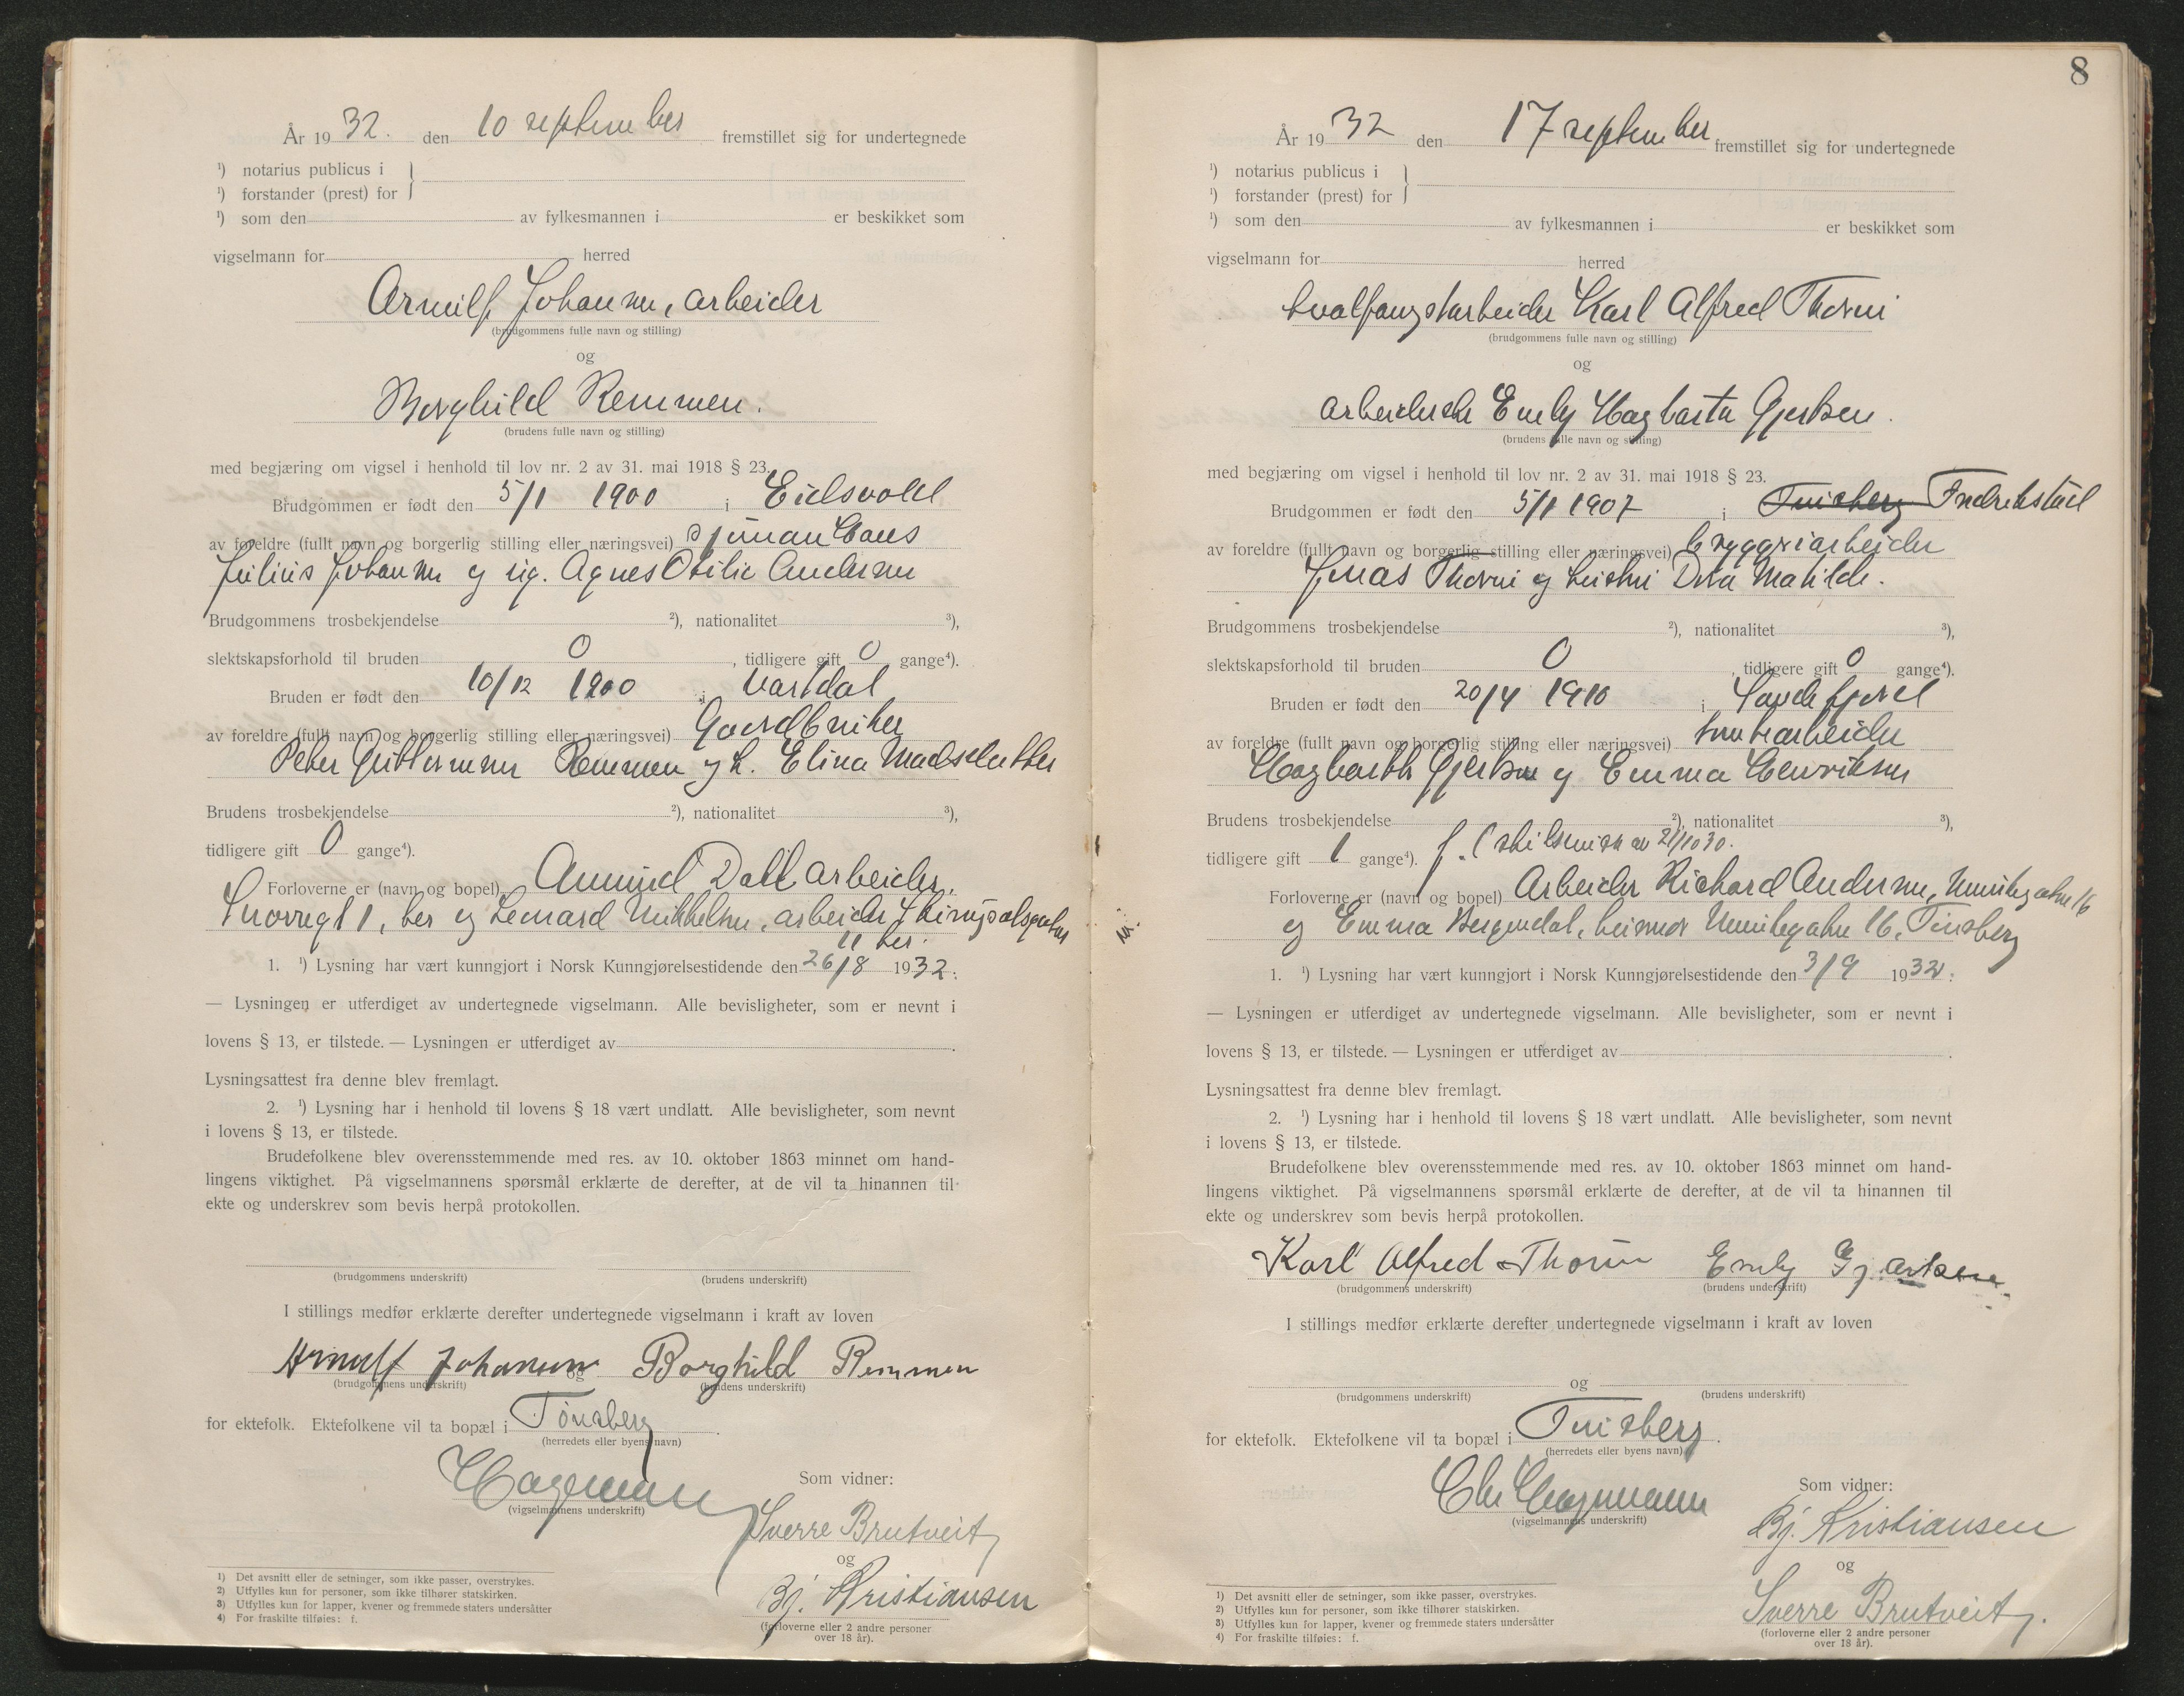 År 19 32. den 10 september fremstillet sig for undertegnede
¹) notarius publicus i
¹) forstander (prest) for
¹) som den av fylkesmannen i er beskikket som
vigselmann for herred
Arnulf Johansen, arbeider
(brudgommens fulle navn og stilling)
og
Borghild Remmen.
(brudens fulle navn og stilling)
med begjæring om vigsel i henhold til lov nr. 2 av 31. mai 1918 § 23.
Brudgommen er født den 5/1 1900 i Eidsvold
av foreldre (fullt navn og borgerlig stilling eller næringsvei) sjøman Hans
Julius Johansen og ug. Agnes Otilie Andersen
Brudgommens trosbekjendelse ²), nationalitet ³),
slektskapsforhold til bruden 0, tidligere gift 0 gange⁴).
Bruden er født den 10/12 1900 i Vartdal
av foreldre (fullt navn og borgerlig stilling eller næringsvei) Gaardbruker
Peter Guttormsen Remmen og h. Elina Madsdatter
Brudens trosbekjendelse ²), nationalitet ³),
tidligere gift 0 gange⁴).
Forloverne er (navn og bopel) Amund Dall arbeider,
Snorregt 1, her og Leonard Mikkelsen, arbeider,
11 her.
1. ¹) Lysning har vært kunngjort i Norsk Kunngjørelsestidende den 26/8 1932.
— Lysningen er utferdiget av undertegnede vigselmann. Alle bevisligheter, som er nevnt i
lovens § 13, er tilstede. — Lysningen er utferdiget av .
Lysningsattest fra denne blev fremlagt.
2. ¹) Lysning har i henhold til lovens § 18 vært undlatt. Alle bevisligheter, som nevnt
i lovens § 13, er tilstede.
Brudefolkene blev overensstemmende med res. av 10. oktober 1863 minnet om hand-
lingens viktighet. På vigselmannens spørsmål erklærte de derefter, at de vil ta hinannen til
ekte og underskrev som bevis herpå protokollen.
(brudgommens underskrift) (brudens underskrift)
I stillings medfør erklærte derefter undertegnede vigselmann i kraft av loven
Arnulf Johansen og Borghild Remmen
(brudgommens underskrift) (brudens underskrift)
for ektefolk. Ektefolkene vil ta bopæl i Tönsberg.
(herredets eller byens navn)
Hagemann
(vigselmannens underskrift)
Som vidner:
Sverre Brutveit
og
Bj. Kristiansen
(forloverne eller 2 andre personer
over 18 år).
1) Det avsnitt eller de setninger, som ikke passer, overstrykes.
2) Utfylles kun for personer, som ikke tilhører statskirken.
3) Utfylles kun for lapper, kvener og fremmede staters undersåtter
4) For fraskilte tilføies: f.
8
År 19 32 den 17 september fremstillet sig for undertegnede
¹) notarius publicus i
¹) forstander (prest) for
¹) som den av fylkesmannen i er beskikket som
vigselmann for herred
hvalfangstarbeider Karl Alfred Thorni
(brudgommens fulle navn og stilling)
og
arbeiderske Emly Hagbarta Gjertsen.
(brudens fulle navn og stilling)
med begjæring om vigsel i henhold til lov nr. 2 av 31. mai 1918 § 23.
Brudgommen er født den 5/1 1907 i Tønsberg Fredrikstad
av foreldre (fullt navn og borgerlig stilling eller næringsvei) bryggeriarbeider
Jonas Thorni og hustru Dina Matilde.
Brudgommens trosbekjendelse ²), nationalitet ³),
slektskapsforhold til bruden 0, tidligere gift 0 gange⁴).
Bruden er født den 20/4 1910 i Sandefjord
av foreldre (fullt navn og borgerlig stilling eller næringsvei) tomtearbeider
Hagbarth Gjertsen og Emma Henriksen
Brudens trosbekjendelse ²), nationalitet ³),
tidligere gift 1 gange⁴). f. (skilsmisse av 21/10 30.
Forloverne er (navn og bopel) Arbeider Richard Andersen, 16
og Emma Bergendal, husmor 16, Tønsberg
1. ¹) Lysning har vært kunngjort i Norsk Kunngjørelsestidende den 3/9 1932.
— Lysningen er utferdiget av undertegnede vigselmann. Alle bevisligheter, som er nevnt i
lovens § 13, er tilstede. — Lysningen er utferdiget av .
Lysningsattest fra denne blev fremlagt.
2. ¹) Lysning har i henhold til lovens § 18 vært undlatt. Alle bevisligheter, som nevnt
i lovens § 13, er tilstede.
Brudefolkene blev overensstemmende med res. av 10. oktober 1863 minnet om hand-
lingens viktighet. På vigselmannens spørsmål erklærte de derefter, at de vil ta hinannen til
ekte og underskrev som bevis herpå protokollen.
Karl Alfred Thorni Emly Gjertsen
(brudgommens underskrift) (brudens underskrift)
I stillings medfør erklærte derefter undertegnede vigselmann i kraft av loven
og
(brudgommens underskrift) (brudens underskrift)
for ektefolk. Ektefolkene vil ta bopæl i Tønsberg.
(herredets eller byens navn)
Chr Hagemann
(vigselmannens underskrift)
Som vidner:
Bj. Kristiansen
og
Sverre Brutveit.
(forloverne eller 2 andre personer
over 18 år).
1) Det avsnitt eller de setninger, som ikke passer, overstrykes.
2) Utfylles kun for personer, som ikke tilhører statskirken.
3) Utfylles kun for lapper, kvener og fremmede staters undersåtter
4) For fraskilte tilføies: f.